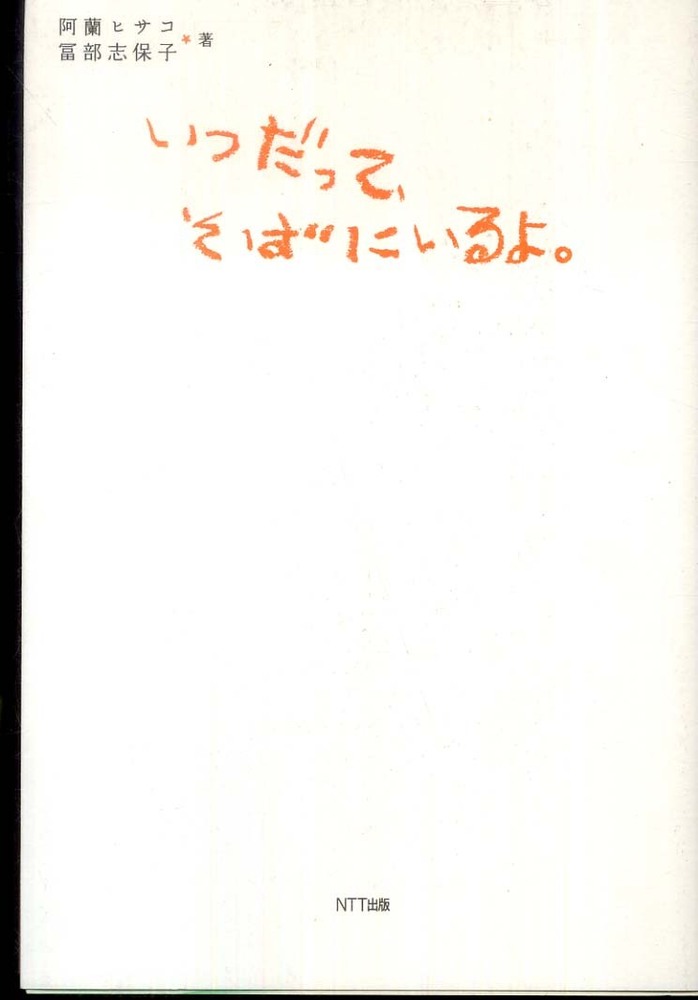 阿蘭ヒサコ
冨部志保子*著
いつだって、
そばにいるよ。
NTT出版